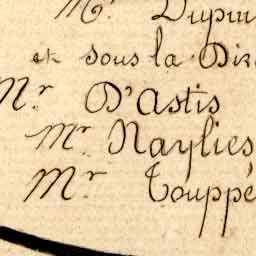 Mr. Dupui
et sous la Dir
Mr. D'Astis
Mr. Naylies
Mr Touppé